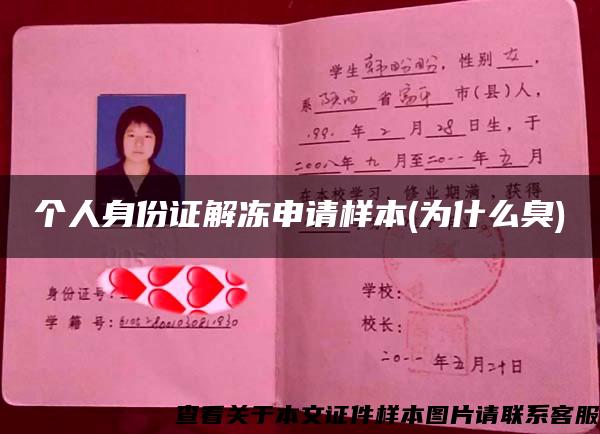 学生韩盼盼，性别女，
系陕西省富平市(县)人，
1991年2月28日生，于
二00八年九月至二0一一年五月
在本校学习，修业期满，获得
个人身份证解冻申请样本(为什么臭)
身份证号：
学籍号：
学校：
校长：
二0一一年五月二十日
查看关于本文证件样本图片请联系客服